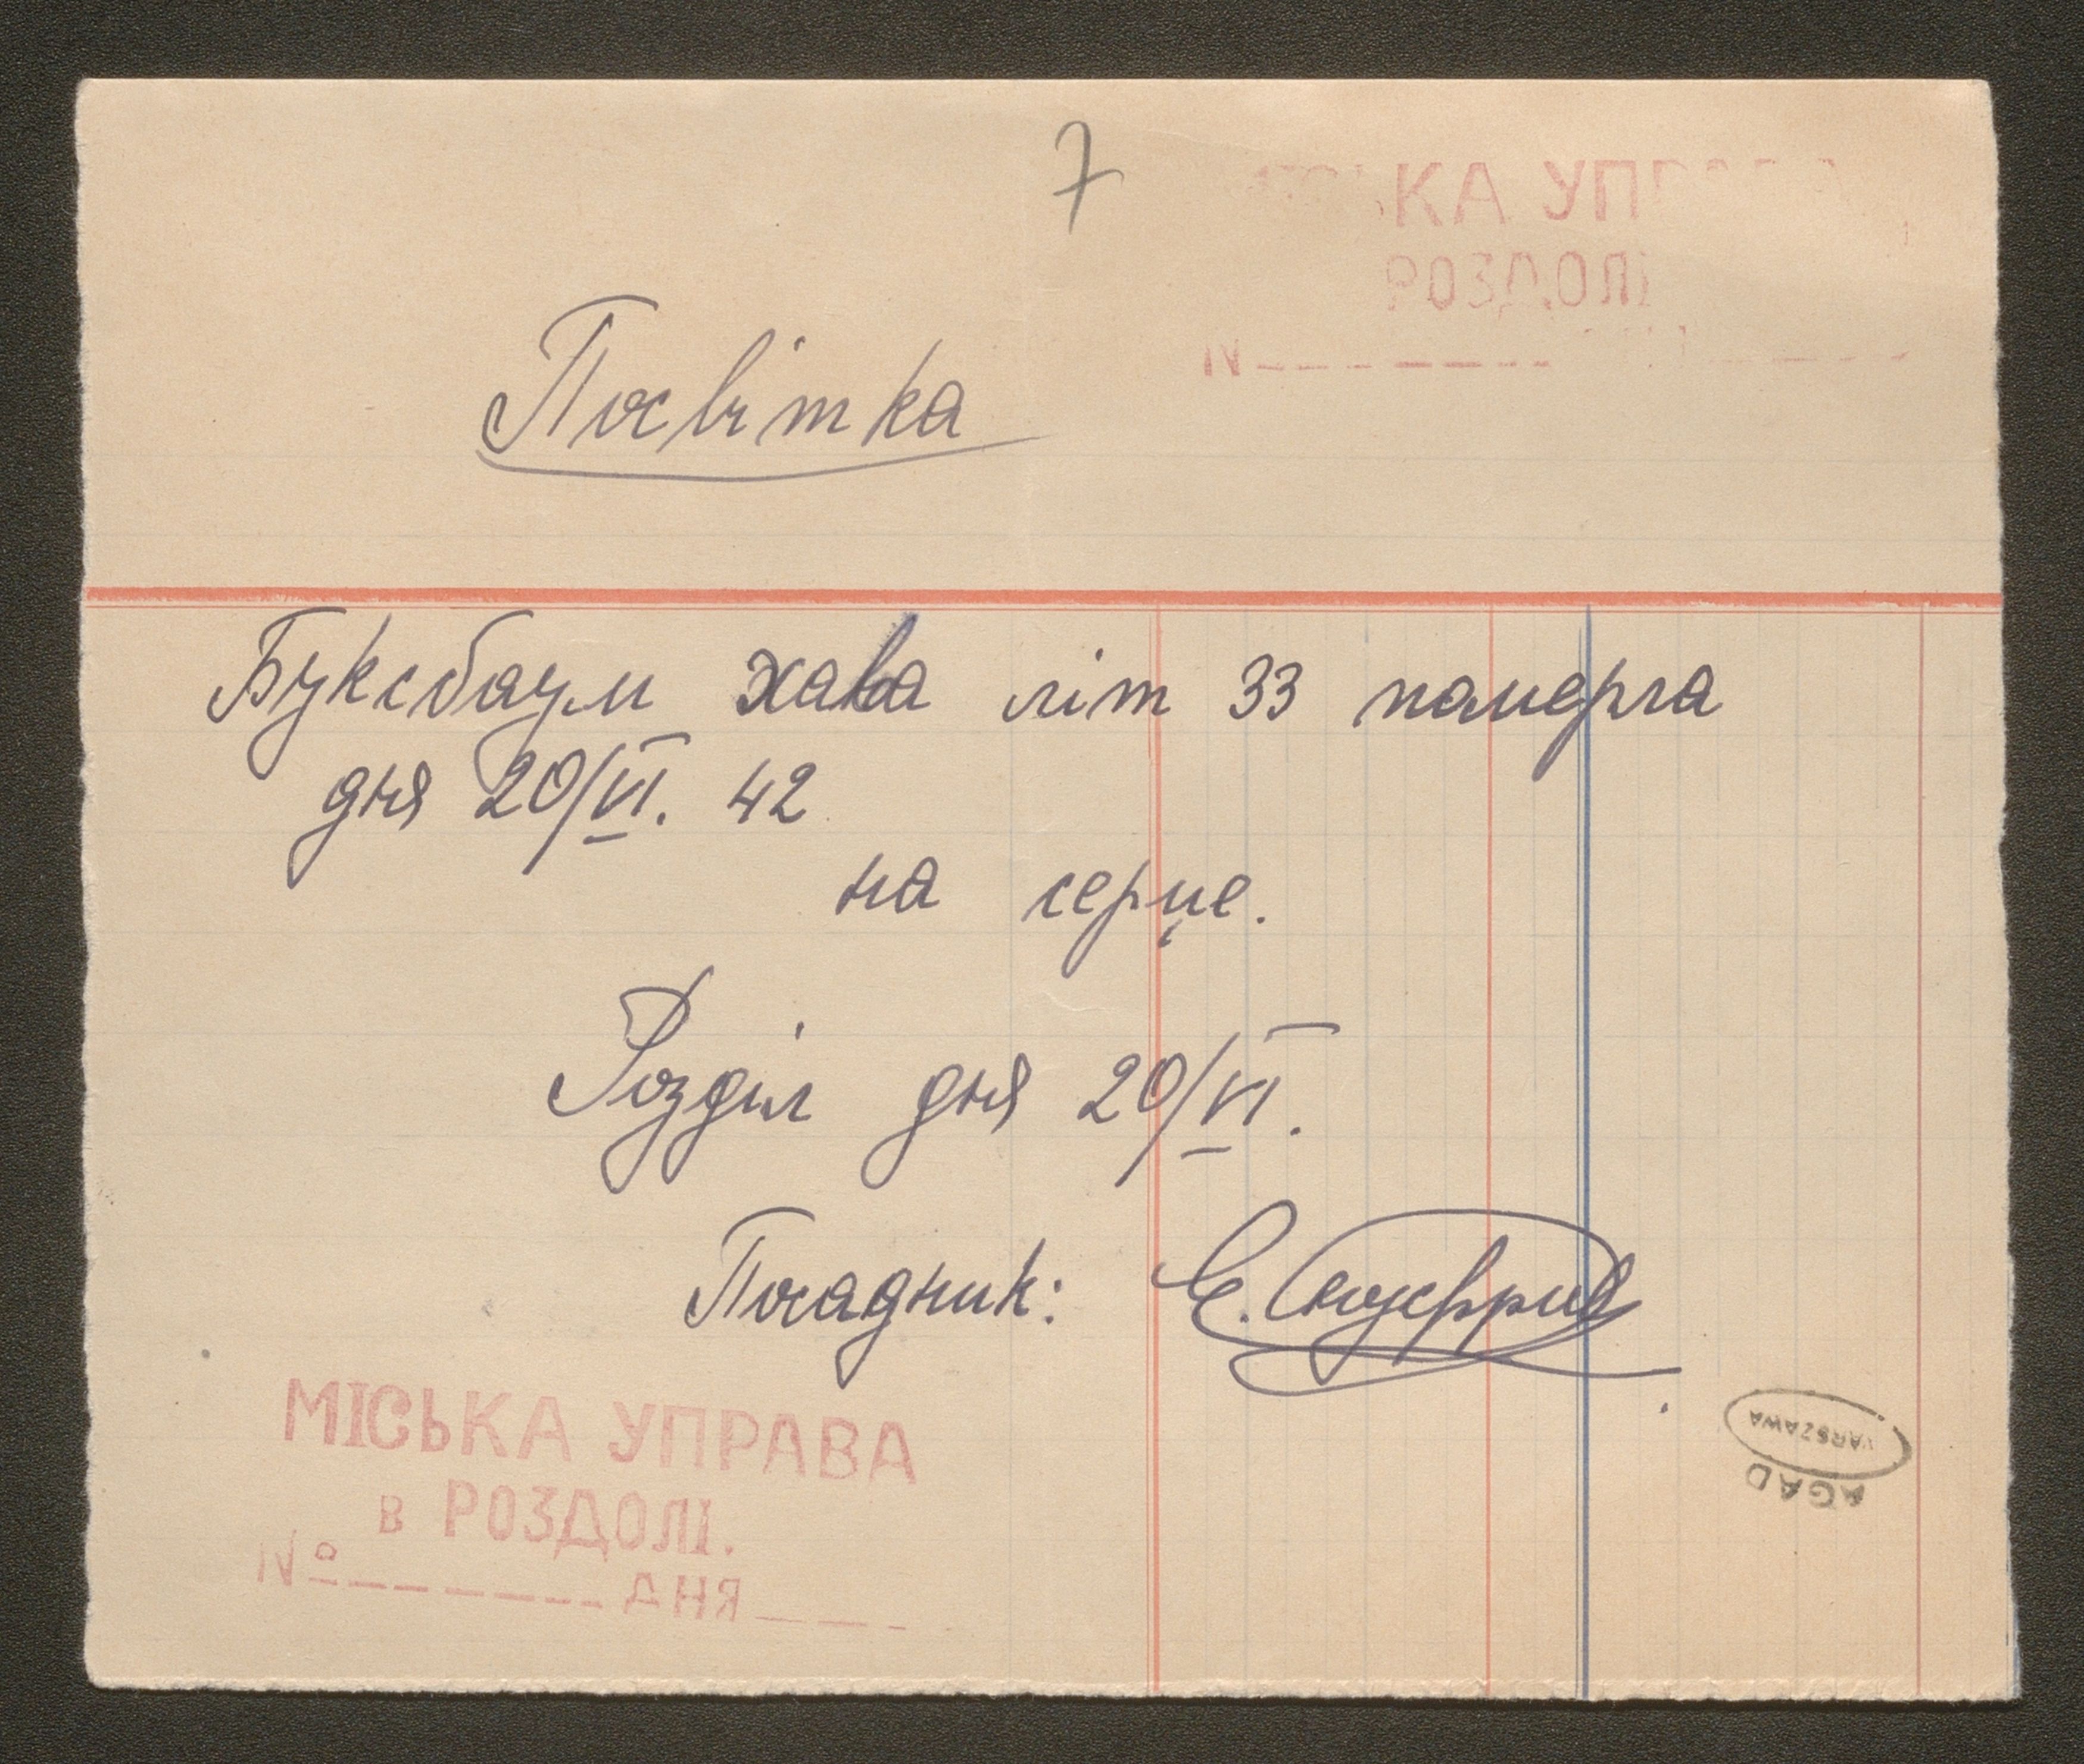 7
КА УП
РОЗДОЛІ
N
Посвітка
Буксбаум Хава літ 33 померла
дня 20/VI. 42
на серце.
Розділ дня 20/VI.
Посадник: Є.
МІСЬКА УПРАВА
в РОЗДОЛІ.
№ ДНЯ
WARSZAWA
AGAD